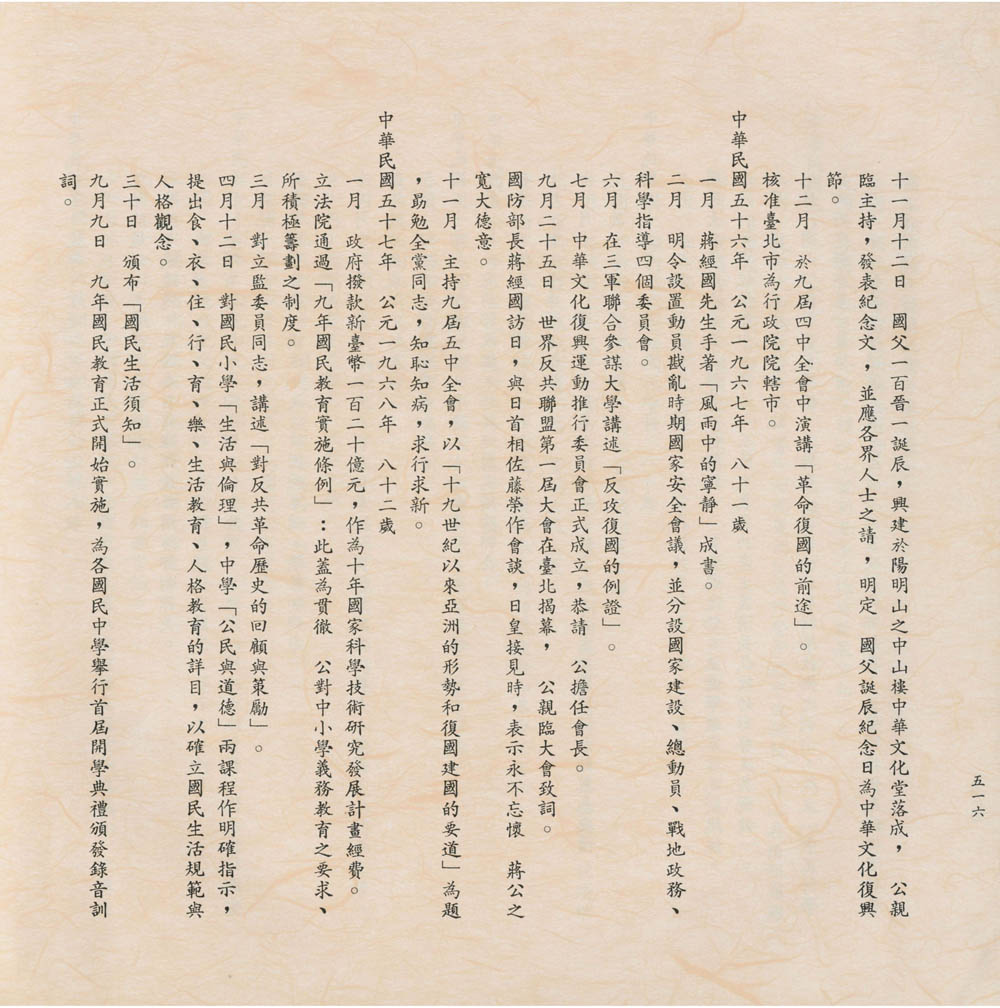 十一月十二日　國父一百晉一誕辰，興建於陽明山之中山樓中華文化堂落成，　公親
臨主持，發表紀念文，並應各界人士之請，明定　國父誕辰紀念日為中華文化復興
節。
十二月　於九屆四中全會中演講「革命復國的前途」。
核准臺北市為行政院院轄市。
中華民國五十六年　公元一九六七年　八十一歲
一月　蔣經國先生手著「風雨中的寧靜」成書。
二月　明令設置動員戡亂時期國家安全會議，並分設國家建設、總動員、戰地政務、
科學指導四個委員會。
六月　在三軍聯合參謀大學講述「反攻復國的例證」。
七月　中華文化復興運動推行委員會正式成立，恭請　公擔任會長。
九月二十五日　世界反共聯盟第一屆大會在臺北揭幕，　公親臨大會致詞。
國防部長蔣經國訪日，與日首相佐藤榮作會談，日皇接見時，表示永不忘懷　蔣公之
寬大德意。
十一月　主持九屆五中全會，以「十九世紀以來亞洲的形勢和復國建國的要道」為題
，勗勉全黨同志，知恥知病，求行求新。
中華民國五十七年　公元一九六八年　八十二歲
一月　政府撥款新臺幣一百二十億元，作為十年國家科學技術研究發展計畫經費。
立法院通過「九年國民教育實施條例」：此蓋為貫徹　公對中小學義務教育之要求、
所積極籌劃之制度。
三月　對立監委員同志，講述「對反共革命歷史的回顧與策勵」。
四月十二日　對國民小學「生活與倫理」，中學「公民與道德」兩課程作明確指示，
提出食、衣、住、行、育、樂、生活教育、人格教育的詳目，以確立國民生活規範與
人格觀念。
三十日　頒布「國民生活須知」。
九月九日　九年國民教育正式開始實施，為各國民中學舉行首屆開學典禮頒發錄音訓
詞。
五一六